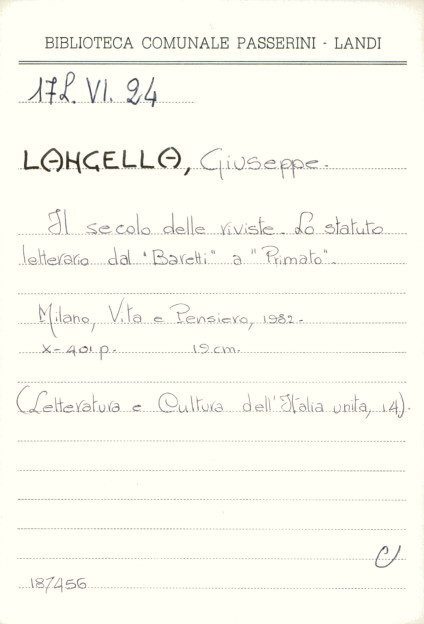 BIBLIOTECA COMUNALE PASSERINI - LANDI
17L. VI. 24
LANGELLA, Giuseppe.
Il secolo delle riviste. Lo statuto
letterario dal "Baretti" a "Primato".
Milano, Vita e Pensiero, 1982.
X-401 p. 19 cm.
(Letteratura e Cultura dell'Italia unita, 14).
187456